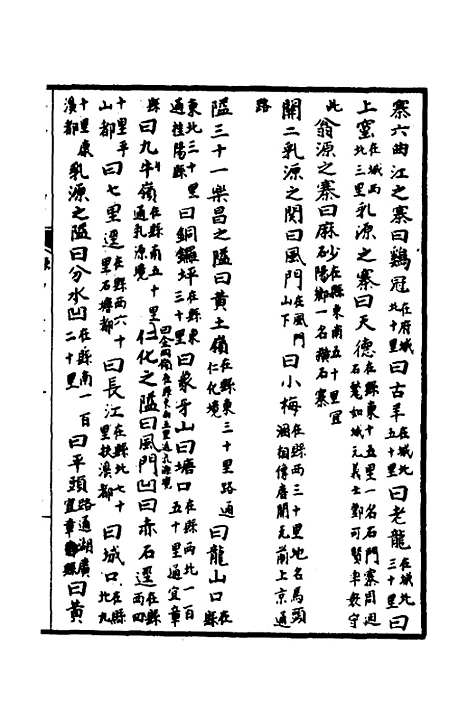 寨六曲江之寨曰鷄冠在府城北十里曰古羊在城北五十里曰老龍在城北三十里曰
上窰在城西北三里乳源之寨曰天德在縣東十五里一名石門寨周迴石壁如城元義士鄧可賢率衆守
此翁源之寨曰麻砂在縣東南五十里宜陽鄉一名石寨
關二乳源之関曰風門在風門山下曰小梅在縣西三十里地名馬頭洞相傳唐開元前上京通
路
隘三十一樂昌之隘曰黃土嶺在縣東三十里路通仁化境曰龍山口在縣
東北三十里通桂陽縣曰銅鑼坪在縣東三十里曰象牙山曰塘口在縣西北一百五十里通宜章
縣曰九牛嶺在縣南五十里通乳源境曰金嶺在縣東南五里通乳源境仁化之隘曰風門凹曰赤石逕在縣西四
十里平山都曰七里逕在縣西六十里石塘都曰長江在縣北七十里扶溪都曰城口在縣北九
十里康溪都乳源之隘曰分水凹在縣南一百二十里曰平頭路通湖廣宜章縣曰黃